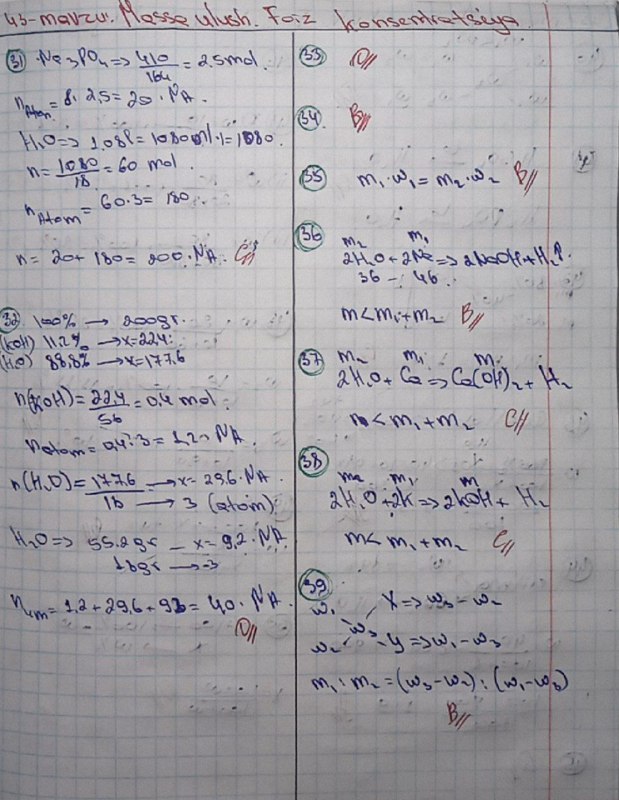 43-mavzu. Massa ulush. Foiz konsentratsiya
31 Na3PO4 => 410/164 = 2.5 mol.
nAtom = 8 · 2,5 = 20 · NA.
H2O => 1.08l = 1080ml · 1 = 1080.
n = 1080/18 = 60 mol
nAtom = 60 · 3 = 180
n = 20 + 180 = 200 · NA. C//
32 100% → 200gr.
(KOH) 11.2% → x = 22.4
(H2O) 88,8% → x = 177.6
n(KOH) = 22,4/56 = 0,4 mol
natom = 0,4 · 3 = 1,2 · NA.
n(H2O) = 177.6 → x = 29.6 · NA
18 → 3 (atom)
H2O => 55.2gr — x = 9,2 · NA
18gr → 3
= 1,2 + 29,6 + 9,2 = 40 · NA.
D//
33 D//
34 B//
35 m1 · w1 = m2 · w2 B//
36 m2 m1
2H2O + 2Na => 2NaOH + H2↑.
36 — 46
m < m1 + m2 B//
37 m2 m1 m
2H2O + Ca => Ca(OH)2 + H2
m < m1 + m2 C//
38 m2 m1 m
2H2O + 2K => 2KOH + H2
m < m1 + m2 C//
39
w1 X => w3 - w2
w3
w2 y => w1 - w3
m1 : m2 = (w3 - w2) : (w1 - w3)
B//